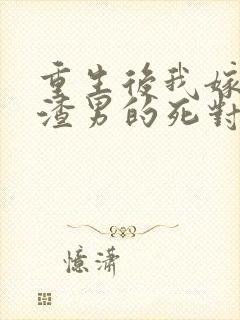 重生後我嫁
渣男的死對
憶瀟